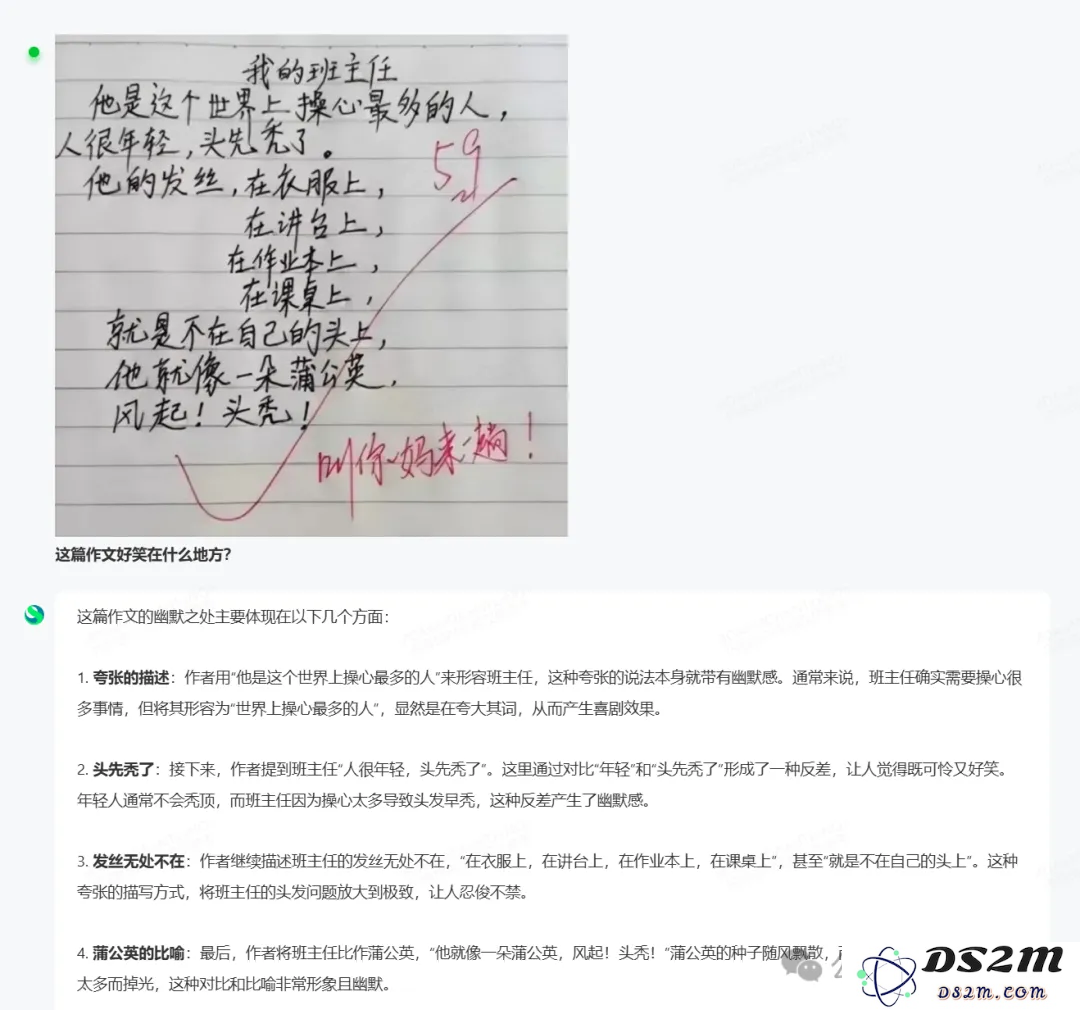 我的班主任
他是这个世界上操心最多的人，
人很年轻，头先秃了。
59
他的发丝，在衣服上，
在讲台上，
在作业本上，
在课桌上，
就是不在自己的头上，
他就像一朵蒲公英，
风起！头秃！
叫你妈来一趟！
这篇作文好笑在什么地方？
这篇作文的幽默之处主要体现在以下几个方面：
1. 夸张的描述：作者用“他是这个世界上操心最多的人”来形容班主任，这种夸张的说法本身就带有幽默感。通常来说，班主任确实需要操心很
多事情，但将其形容为“世界上操心最多的人”，显然是在夸大其词，从而产生喜剧效果。
2. 头先秃了：接下来，作者提到班主任“人很年轻，头先秃了”。这里通过对比“年轻”和“头先秃了”形成了一种反差，让人觉得既可怜又好笑。
年轻人通常不会秃顶，而班主任因为操心太多导致头发早秃，这种反差产生了幽默感。
3. 发丝无处不在：作者继续描述班主任的发丝无处不在，“在衣服上，在讲台上，在作业本上，在课桌上”，甚至“就是不在自己的头上”。这种
夸张的描写方式，将班主任的头发问题放大到极致，让人忍俊不禁。
4. 蒲公英的比喻：最后，作者将班主任比作蒲公英，“他就像一朵蒲公英，风起！头秃！“蒲公英的种子随风飘散，
太多而掉光，这种对比和比喻非常形象且幽默。
DS2M
DS2M.COM